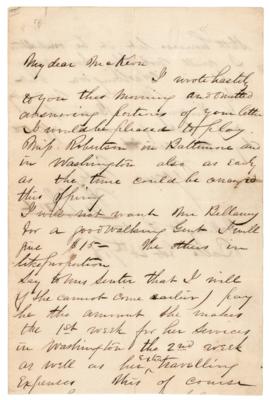 My dear McKeon
I wrote hastily
to you this morning and omitted
answering portions of your letter
I would be pleased to play
Miss Robertson in Baltimore and
in Washington also as early
as the time could be changed
this Spring
I will not want Mr Bellamy
for a good walking Gent I will
give $15— the others in
like proportion
Say to Mrs that I will
if she cannot come earlier pay
her the amount she makes
the 1st week for her services
in Washington the 2nd week
as well as her extra travelling
expenses this of course